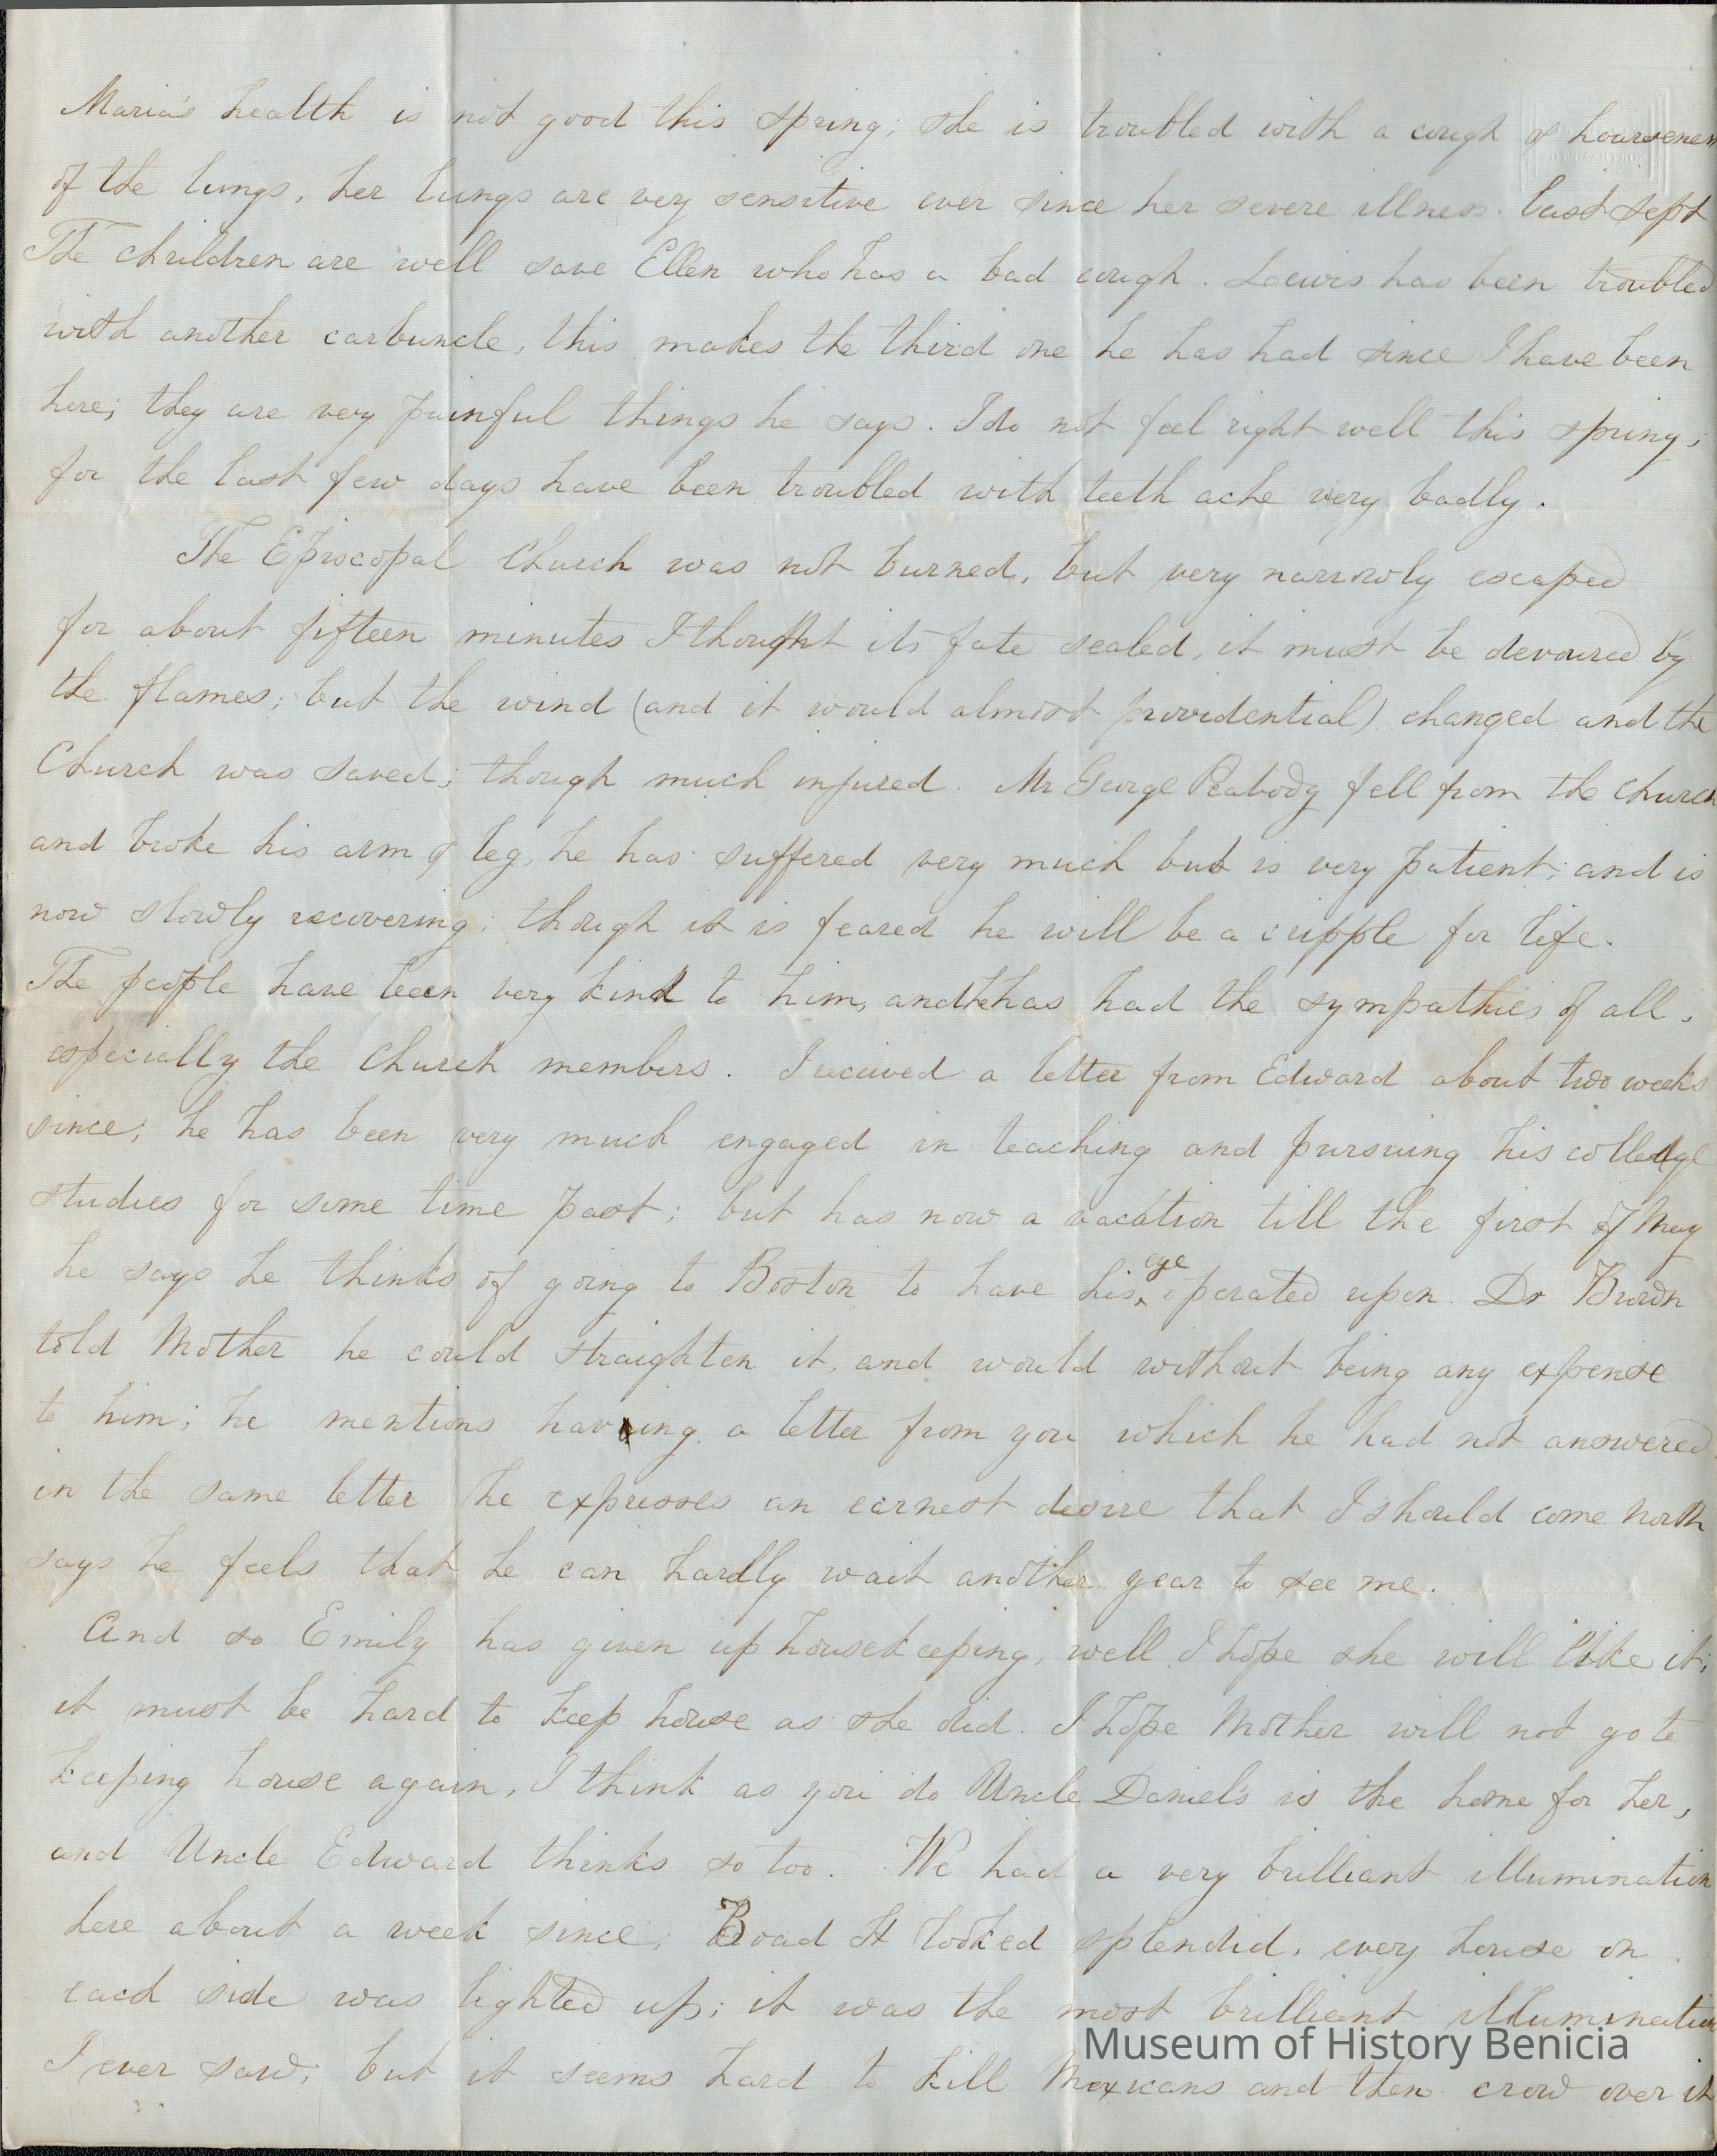 Maria's health is not good this spring; she is troubled with a cough & hoarseness
of the lungs, her lungs are very sensitive ever since her severe illness last Sept
The children are well save Ellen who has a bad cough. Lewis has been troubled
with another carbuncle, this makes the third one he has had since I have been
here; they are very painful things he says. I do not feel right well this spring,
for the last few days have been troubled with teeth ache very badly.
The Episcopal Church was not burned, but very narrowly escaped
for about fifteen minutes I thought its fate sealed, it must be devoured by
the flames; but the wind (and it would almost providential) changed and the
Church was saved; though much injured. Mr George Peabody fell from the church
and broke his arm & leg, he has suffered very much but is very patient; and is
now slowly recovering; though it is feared he will be a cripple for life.
The people have been very kind to him, and he has had the sympathies of all,
especially the Church members. I received a letter from Edward about two weeks
since; he has been very much engaged in teaching and pursuing his colledge
studies for some time past; but has now a vacation till the first of May
he says he thinks of going to Boston to have his eye operated upon. Dr Brown
told Mother he could straighten it, and would without being any expense
to him; he mentions having a letter from you which he had not answered
in the same letter he expresses an earnest desire that I should come North
says he feels that he can hardly wait another year to see me.
And so Emily has given up housekeeping, well I hope she will like it;
it must be hard to keep house as she did. I hope Mother will not go to
keeping house again, I think as you do Uncle Daniel's is the home for her,
and Uncle Edward thinks so too. We had a very brilliant illumination
here about a week since; Broad St looked splendid, every house on
each side was lighted up; it was the most brilliant illumination
I ever saw; but it seems hard to kill Mexicans and then crow over it
Museum of History Benicia